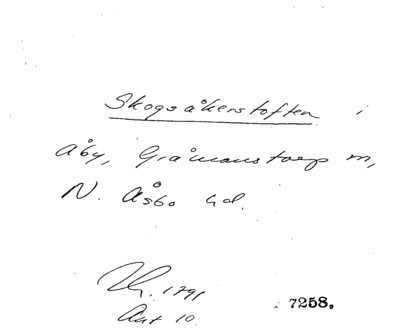 Skogsåkerstoften i
Åby, Gråmanstorp sn,
N. Åsbo hd.
1791
Akt 10.
7258.